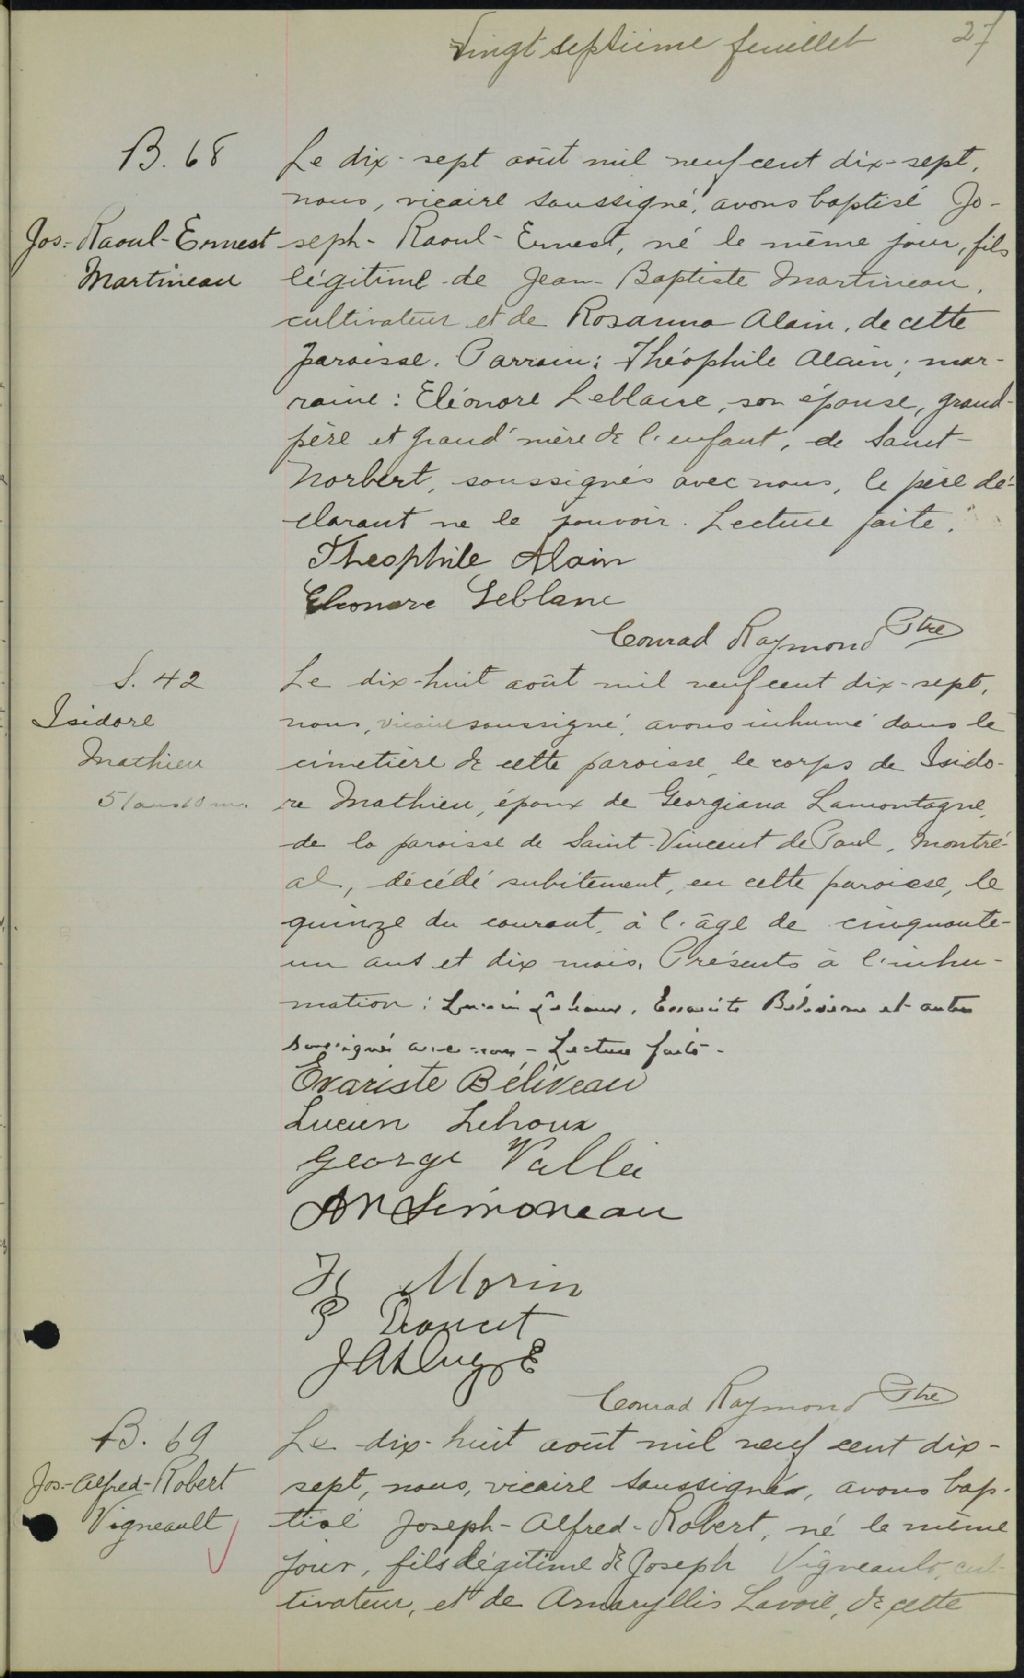 Vingt septième feuillet 27
B. 68
Jos.- Raoul-Ernest
Martineau
Le dix-sept août mil neuf cent dix-sept,
nous, vicaire soussigné, avons baptisé Jo-
seph- Raoul- Ernest, né le même jour, fils
légitime de Jean-Baptiste Martineau,
cultivateur et de Rosanna Alain, de cette
paroisse. Parrain: Théophile Alain; mar-
raine: Eléonore Leblanc, son épouse, grand-
père et grand'mère de l'enfant, de Saint-
Norbert, soussignés avec nous, le père dé-
clarant ne le pouvoir. Lecture faite.
Theophile Alain
Eleonore Leblanc
Conrad Raymond Ptre
S. 42
Isidore
Mathieu
51 ans 10 m.
Le dix-huit août mil neuf cent dix-sept,
nous, vicaire soussigné, avons inhumé dans le
cimetière de cette paroisse le corps de Isido-
re Mathieu, époux de Georgiana Lamontagne,
de la paroisse de Saint-Vincent de Paul, Montré-
al, décédé subitement, en cette paroisse, le
quinze du courant, à l'âge de cinquante-
un ans et dix mois. Présents à l'inhu-
mation: Lucien Lehoux, Evariste Béliveau et autres
soussignés avec nous - Lecture faite -
Evariste Béliveau
Lucien Lehoux
George Vallée
AN Simoneau
Morin
P Doucet
Conrad Raymond Ptre
B. 69
Jos.-Alfred-Robert
Vigneault
Le dix-huit août mil neuf cent dix-
sept, nous, vicaire soussigné, avons bap-
tisé Joseph-Alfred-Robert, né le même
jour, fils légitime de Joseph Vigneault, cul-
tivateur, et de Amaryllis Lavoie, de cette